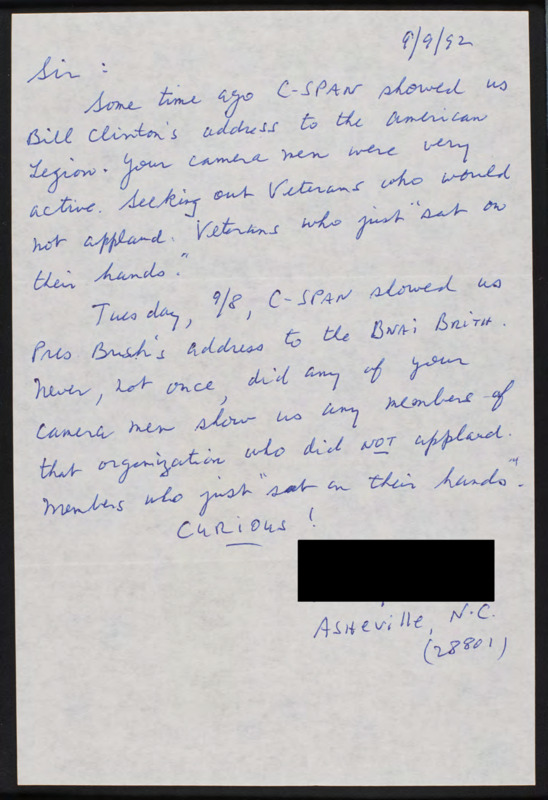 9/9/92
Sir:
Some time ago C-SPAN showed us
Bill Clinton's address to the american
Legion. Your camera men were very
active. Seeking out Veterans who would
not applaud. Veterans who just "sat on
their hands."
Tuesday, 9/8, C-SPAN showed us
Pres Bush's address to the BNAi BRITH.
Never, not once, did any of your
camera men show us any members of
that organization who did NOT applaud.
Members who just "sat on their hands".
CURIOUS!
ASHeville, N.C.
(28801)